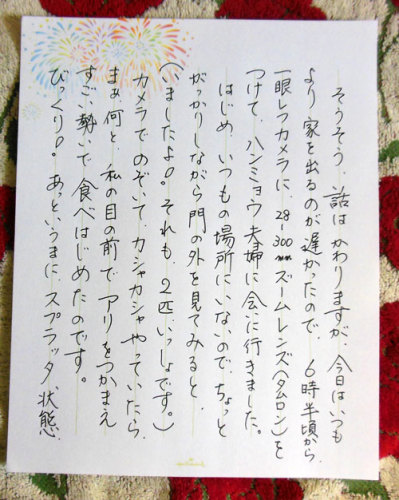 そうそう、話はかわりますが、今日はいつも
より家を出るのが遅かったので、6時半頃から、
一眼レフカメラに、28-300mmズームレンズ(タムロン)を
つけて、ハンミョウ夫婦に会いに行きました。
はじめ、いつもの場所にいないので、ちょっと
がっかりしながら門の外を見てみると、
(いましたよ!!それも、2匹いっしょです。)
カメラでのぞいて、カシャカシャやっていたら、
まぁ何と、私の目の前で、アリをつかまえ
すごい勢いで、食べはじめたのです。
びっくり!!あっというまに、スプラッタ状態。